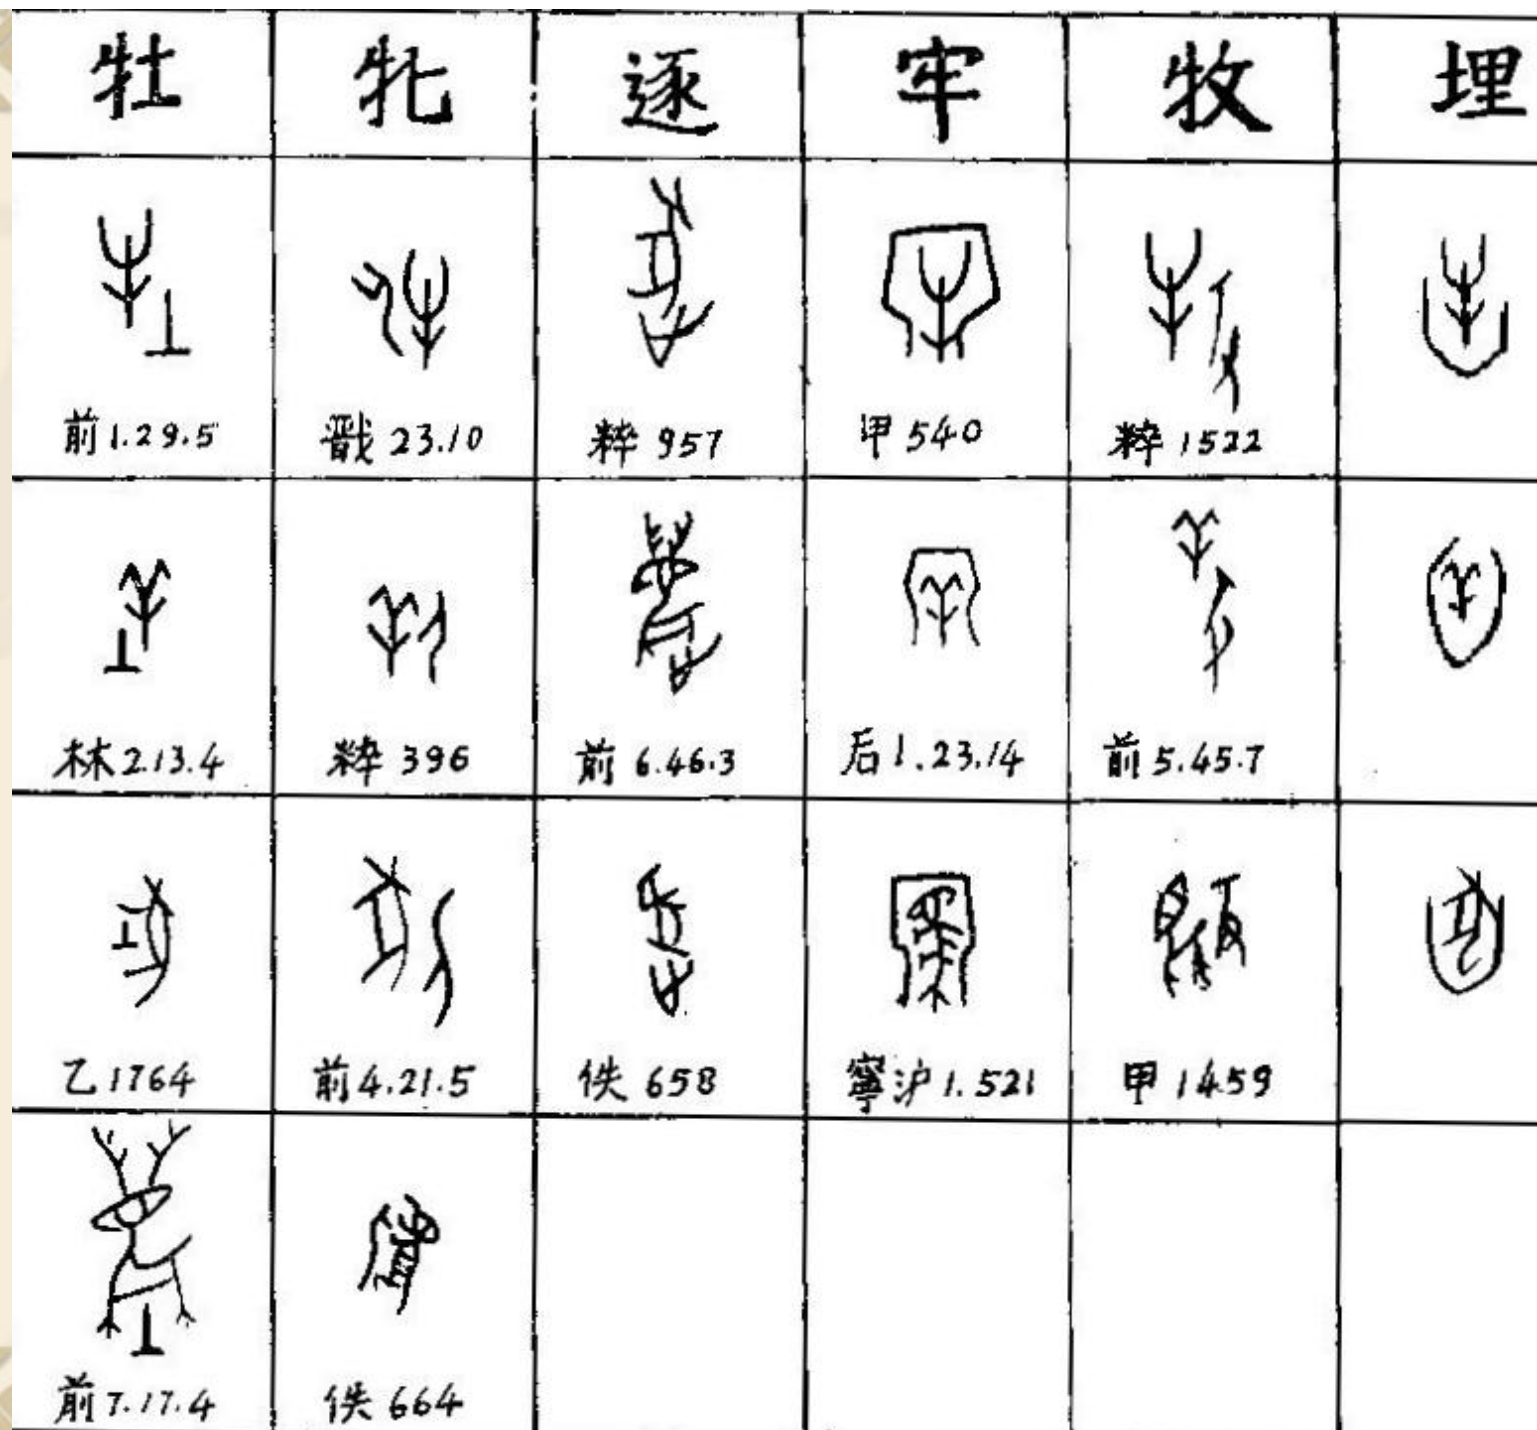 牡 牝 逐 牢 牧 埋
前1.29.5 戬23.10 粹957 甲540 粹1522
林2.13.4 粹396 前6.46.3 后1.23.14 前5.45.7
乙1764 前4.21.5 佚658 寧沪1.521 甲1459
前7.17.4 佚664